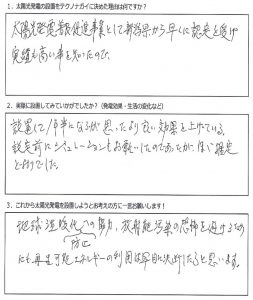 1. 太陽光発電の設置をテクノナガイに決めた理由は何ですか？
太陽光発電普及促進事業として新潟県から早くに認定を受け
実績も高い事を知ったので。
2. 実際に設置してみていかがでしたか？（発電効果・生活の変化など）
設置して1年半になるが思ったより良い効果を上げている。
設定前にシュミレーションもお願いしたのであったが、ほぼ確定
どおりでした。
3. これから太陽光発電を設置しようとお考えの方に一言お願いします！
地球温暖化への努力、放射能汚染の恐怖を避けるため
防止
にも再生可能エネルギーの利用は早目に決断したらと思います。